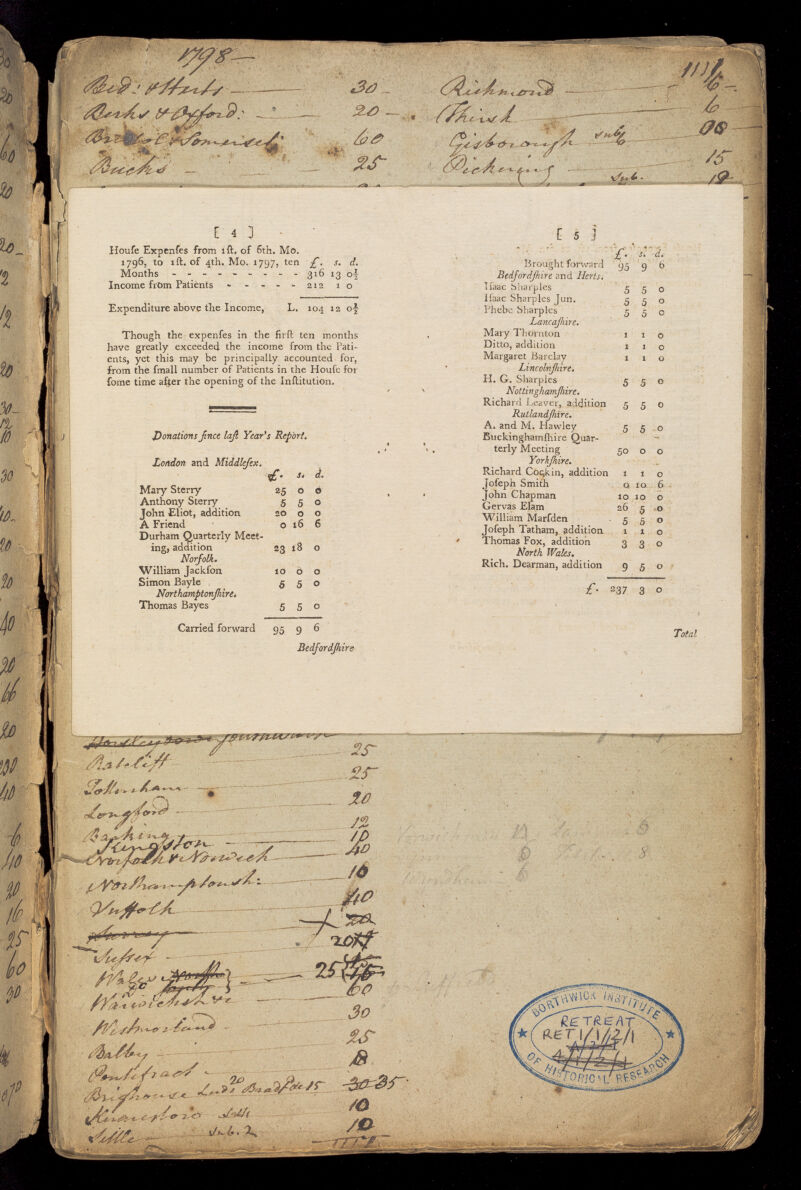 1798 —
Bed: & Herts — 30 —
Berks & Oxford: — 20 —
& Somerset 60
Bucks — 25
1117
Richmond — 6 —
Thirsk — 6
Gisborough sub 6
Pickering — 15
Sub. 18
[ 4 ]
Houſe Expenſes from 1ſt. of 6th. Mo.
1796, to 1ſt. of 4th. Mo. 1797, ten £. s. d.
Months - - - - - - - - - 316 13 0½
Income from Patients - - - - - 212 1 0
Expenditure above the Income, L. 104 12 0½
Though the expenſes in the firſt ten months
have greatly exceeded the income from the Pati-
ents, yet this may be principally accounted for,
from the ſmall number of Patients in the Houſe for
ſome time after the opening of the Inſtitution.
Donations ſince laſt Year's Report.
London and Middleſex.
£. s. d.
Mary Sterry 25 0 0
Anthony Sterry 5 5 0
John Eliot, addition 20 0 0
A Friend 0 16 6
Durham Quarterly Meet-
ing, addition 23 18 0
Norfolk.
William Jackſon 10 0 0
Simon Bayle 5 5 0
Northamptonſhire.
Thomas Bayes 5 5 0
Carried forward 95 9 6
Bedfordſhire
[ 5 ]
£. s. d.
Brought forward 95 9 6
Bedfordſhire and Herts.
Iſaac Sharples 5 5 0
Iſaac Sharples Jun. 5 5 0
Phebe Sharples 5 5 0
Lancaſhire.
Mary Thornton 1 1 0
Ditto, addition 1 1 0
Margaret Barclay 1 1 0
Lincolnſhire.
H. G. Sharples 5 5 0
Nottinghamſhire.
Richard Leaver, addition 5 5 0
Rutlandſhire.
A. and M. Hawley 5 5 0
Buckinghamſhire Quar-
terly Meeting 50 0 0
Yorkſhire.
Richard Cockin, addition 1 1 0
Joſeph Smith 0 10 6
John Chapman 10 10 0
Gervas Elam 26 5 0
William Marſden 5 5 0
Joſeph Tatham, addition 1 1 0
Thomas Fox, addition 3 3 0
North Wales.
Rich. Dearman, addition 9 5 0
£. 237 3 0
Total
Horsleydown Southwark
Ratcliff 25
Tottenham 25
Longford 20
Barking 12
Kingston — 10
Norfolk & Norwich — 40
Northamptonsh: 10
Suffolk 40
Surrey 20
Sussex — 20
Wales North 25
Warwicksh &c — 60
Westmorland — 30
Balby — 25
Pontefract — 18
Brighouse Leeds 20 Bradfd 15 30 35
Knaresboro 10
Settle — Sub. 2 10
BORTHWICK INSTITUTE
OF HISTORICAL RESEARCH
RETREAT
RET 1/1/2/1